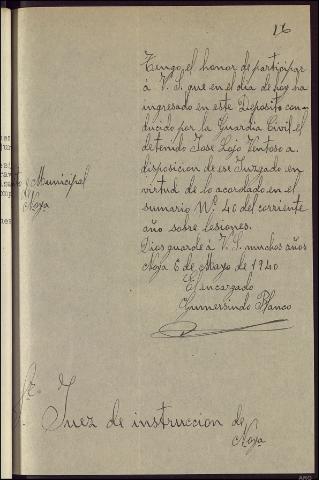 26
Tengo el honor de participar
á V. S. que en el dia de hoy ha
ingresado en este Deposito con-
ducido por la Guardia Civil el
detenido Jose Lojo Ventoso a
disposicion de ese Juzgado en
virtud de lo acordado en el
sumario Nº 40 del corriente
año sobre lesiones.
Dios guarde á V. S. muchos años
Noya 6 de Mayo de 1940
El encargado
Gumersindo Blanco
Municipal
Noya
Sr. Juez de instruccion de
Noya